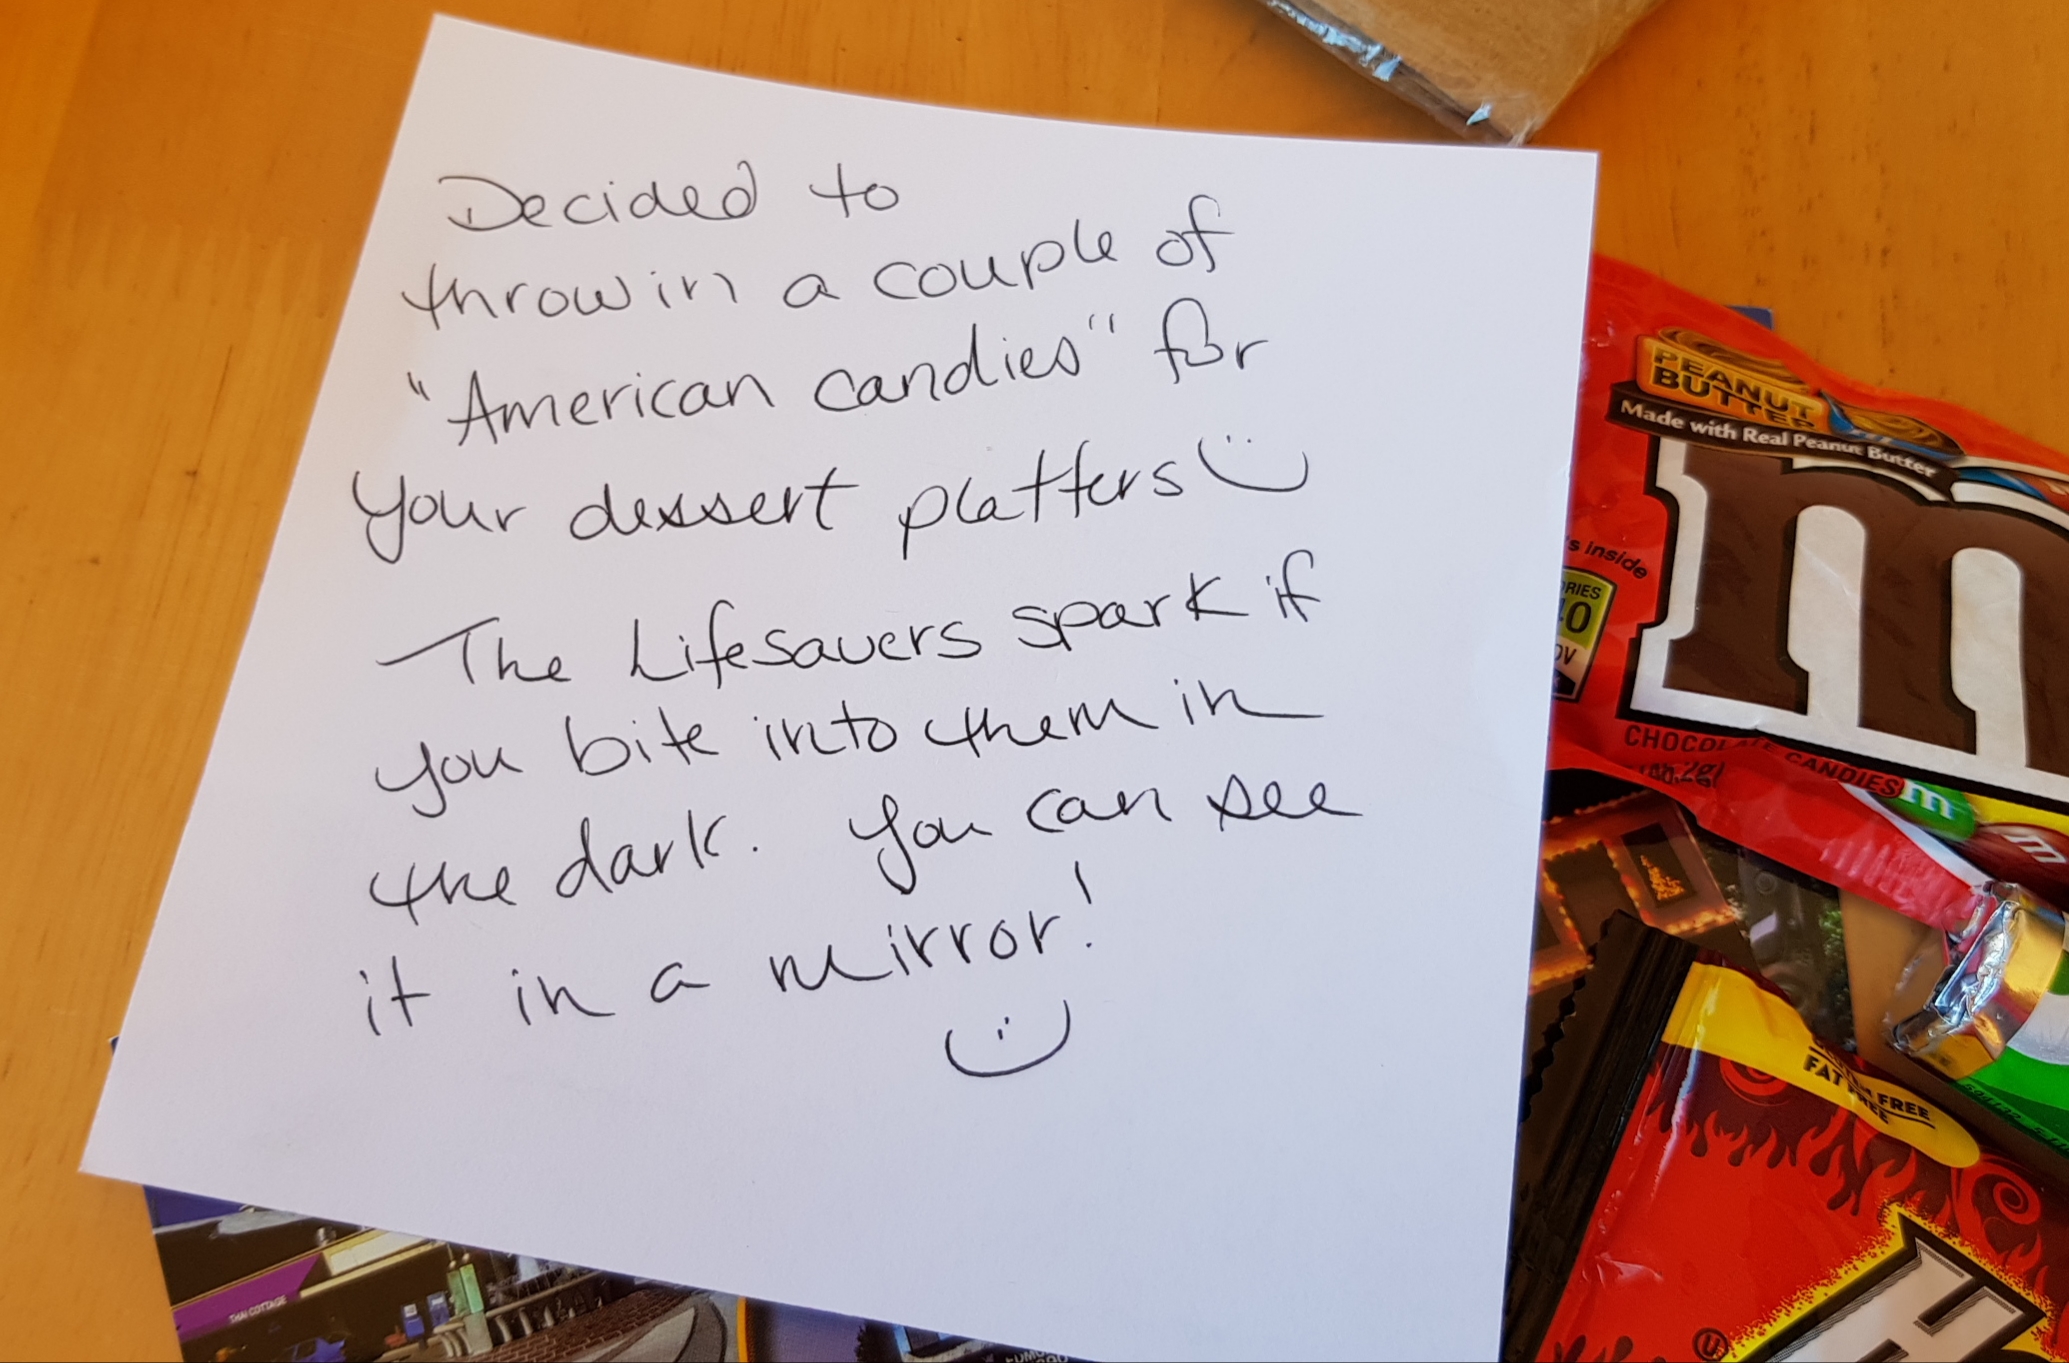 Decided to
throw in a couple of
"American candies" for
your dessert platters
The Lifesavers spark if
you bite into them in
the dark. You can see
it in a mirror!
PEANUT
BUTTER
Made with Real Peanut Butter
's inside
40
DV
m
CHOCOLATE CANDIES
m
m
FAT FREE
H
THAI COTTAGE